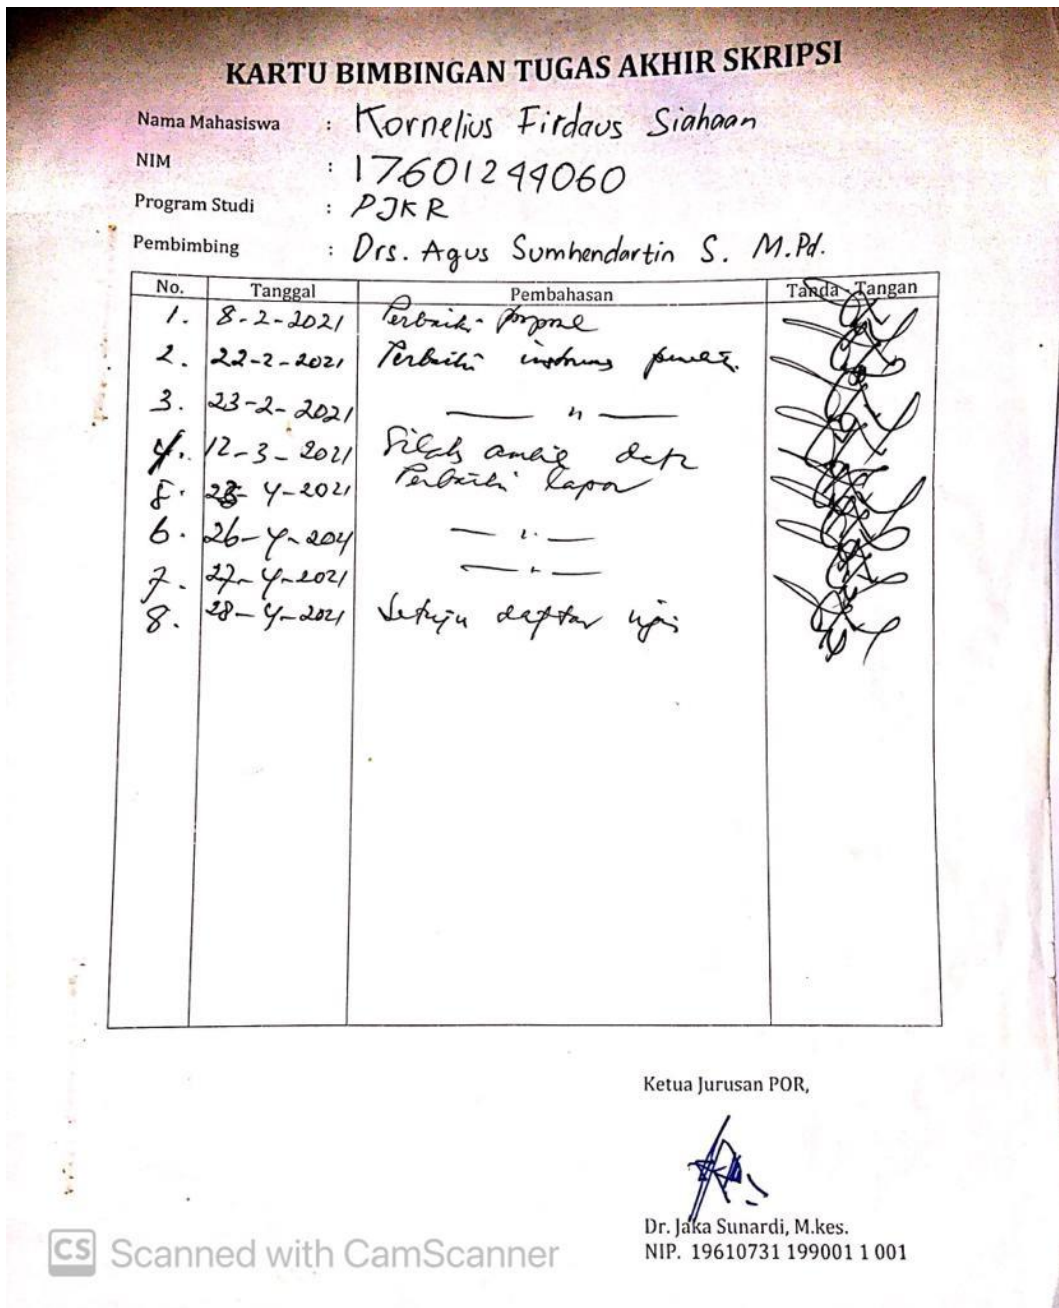 KARTU BIMBINGAN TUGAS AKHIR SKRIPSI
Nama Mahasiswa : Kornelius Firdaus Siahaan
NIM : 17601244060
Program Studi : PJKR
Pembimbing : Drs. Agus Sumhendartin S. M.Pd.
No. Tanggal Pembahasan Tanda - Tangan
1. 8-2-2021 Perbaiki
2. 22-2-2021 Perbaiki
3. 23-2-2021 — " —
4. 12-3-2021 Silah ambil data
5. 4-2021 Perbaiki lapor
6. 26-4-2021 — " —
7. 27-4-2021 — " —
8. 28-4-2021 Setuju daftar ujian
Ketua Jurusan POR,
Dr. Jaka Sunardi, M.kes.
NIP. 19610731 199001 1 001
CS Scanned with CamScanner